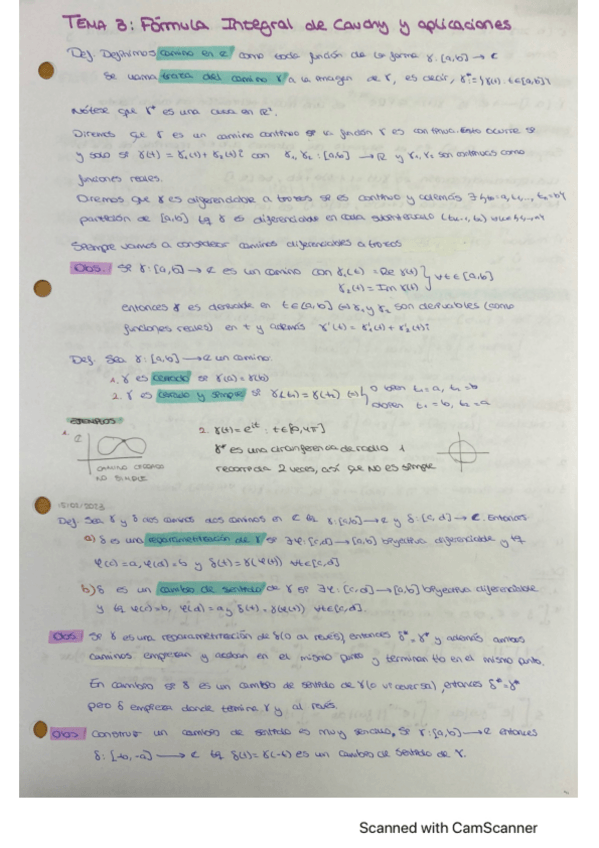 TEMA 3: Fórmula Integral de Cauchy y aplicaciones
Def. Definimos camino en ℂ como toda función de la forma γ: [a,b] → ℂ
Se llama traza del camino γ a la imagen de γ, es decir, γ* = {γ(t) : t∈[a,b]}
Nótese que γ* es una curva en ℝ².
Diremos que γ es un camino continuo si la función γ es continua. Esto ocurre si
y solo si γ(t) = γ₁(t) + γ₂(t)i con γ₁, γ₂ : [a,b] → ℝ y γ₁, γ₂ son continuas como
funciones reales.
Diremos que γ es diferenciable a trozos si es continuo y además ∃ t₀=a, t₁, ..., tₙ=b
partición de [a,b] tq γ es diferenciable en cada subintervalo
Siempre vamos a considerar caminos diferenciables a trozos
Obs. Si γ: [a,b] → ℂ es un camino con γ₁(t) = Re γ(t)
γ₂(t) = Im γ(t) } ∀t∈[a,b]
entonces γ es derivable en t∈[a,b] ⟺ γ₁ y γ₂ son derivables (como
funciones reales) en t y además γ'(t) = γ₁'(t) + γ₂'(t)i
Def. Sea γ: [a,b] → ℂ un camino.
1. γ es cerrado si γ(a) = γ(b)
2. γ es cerrado y simple si γ(t₁) = γ(t₂) ⟺ { o bien t₁=a, t₂=b
o bien t₁=b, t₂=a
EJEMPLOS
1. ℂ
CAMINO CERRADO
NO SIMPLE
2. γ(t) = e^{it} : t∈[0,4π]
γ* es una circunferencia de radio 1
recorrida 2 veces, así que NO es simple
15/02/2023
Def. Sea γ y δ dos caminos en ℂ tq γ: [a,b] → ℂ y δ: [c,d] → ℂ. Entonces
a) δ es una reparametrización de γ si ∃φ: [c,d] → [a,b] biyectiva diferenciable y tq
φ(c) = a, φ(d) = b y δ(t) = γ(φ(t)) ∀t∈[c,d]
b) δ es un cambio de sentido de γ si ∃φ: [c,d] → [a,b] biyectiva diferenciable
y tq φ(c) = b, φ(d) = a y δ(t) = γ(φ(t)) ∀t∈[c,d].
Obs. Si γ es una reparametrización de δ (o al revés) entonces δ* = γ* y además ambos
caminos empiezan y acaban en el mismo punto y terminan en el mismo punto.
En cambio si δ es un cambio de sentido de γ (o viceversa), entonces δ* = γ*
pero δ empieza donde termina γ y al revés.
Obs Construir un cambio de sentido es muy sencillo, Si γ: [a,b] → ℂ entonces
δ: [-b, -a] → ℂ tq δ(t) = γ(-t) es un cambio de sentido de γ.
Scanned with CamScanner